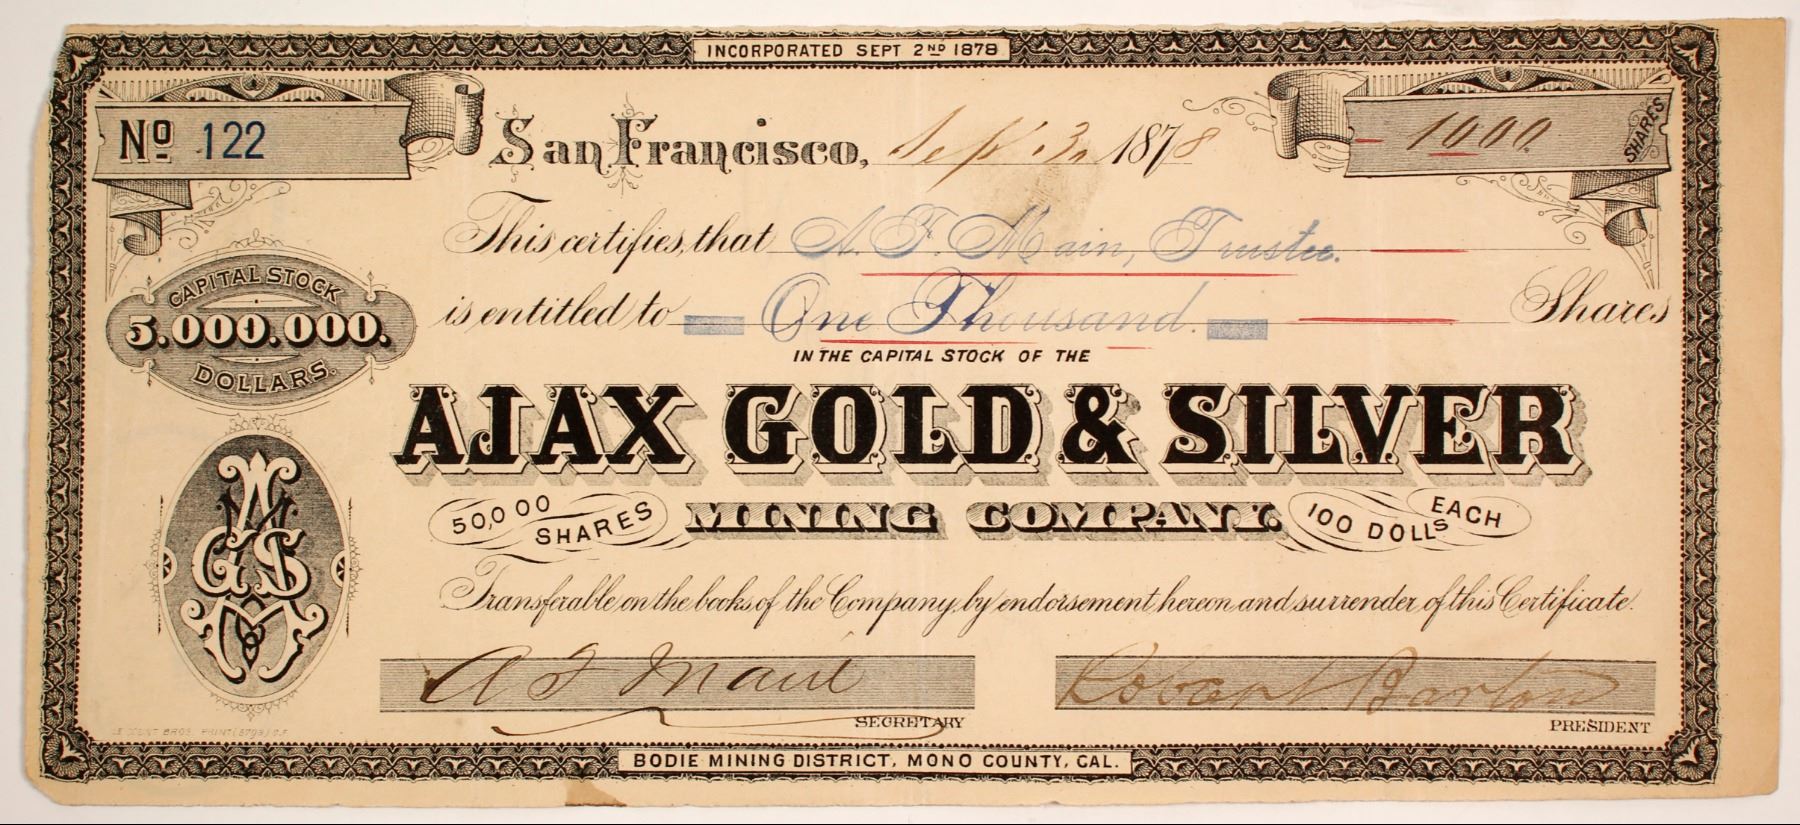 INCORPORATED SEPT 2ND 1878
No 122
San Francisco, Sept 3, 1878
1000 SHARES
This certifies, that A. F. Main, Trustee.
is entitled to One Thousand. Shares
CAPITAL STOCK
5.000.000.
DOLLARS.
IN THE CAPITAL STOCK OF THE
AJAX GOLD & SILVER
50,000 SHARES
MINING COMPANY.
100 DOLLS EACH
AGSM
Transferable on the books of the Company, by endorsement hereon and surrender of this Certificate.
A F Main
SECRETARY
Robert Barton
PRESIDENT
BODIE MINING DISTRICT, MONO COUNTY, CAL.